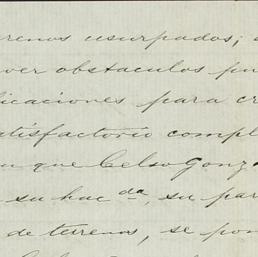 rrenos usurpados;
ver obstaculos
licaciones para cr
satisfactorio compl
que Celso Gonz
su hac da, su par
de terrenos, se pon